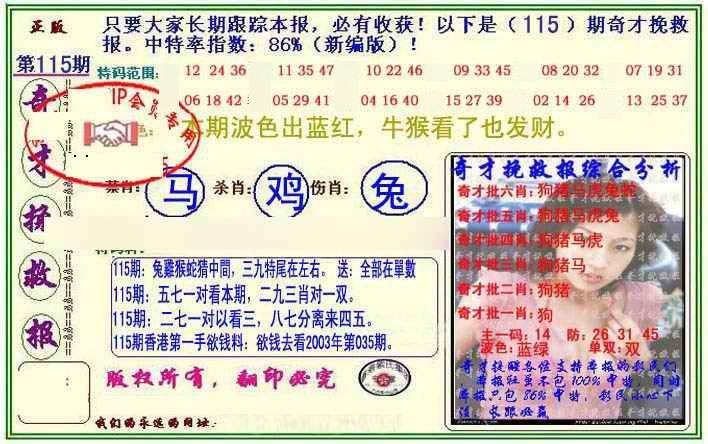 正版
只要大家长期跟踪本报，必有收获！以下是（115）期奇才挽救
报。中特率指数：86%（新编版）！
第115期
特码范围：
12 24 36 11 35 47 10 22 46 09 33 45 08 20 32 07 19 31
06 18 42 05 29 41 04 16 40 15 27 39 02 14 26 13 25 37
IP会员专用
本期波色出蓝红，牛猴看了也发财。
奇才挽救报
马 杀肖：鸡 伤肖：兔
115期：兔雞猴蛇猜中間，三九特尾在左右。 送：全部在單數
115期：五七一对看本期，二九三肖对一双。
115期：二七一对以看三，八七分离来四五。
115期香港第一手欲钱料：欲钱去看2003年第035期。
版权所有，翻印必究
我们的永远的网址：
奇才挽救报综合分析
奇才批六肖：狗猪马虎兔蛇
奇才批五肖：狗猪马虎兔
奇才批四肖：狗猪马虎
奇才批三肖：狗猪马
奇才批二肖：狗猪
奇才批一肖：狗
主一码：14 防：26 31 45
波色：蓝绿 单双：双
奇才提醒各位支持本报的彩民们
本报虽不包100%中特，同时
本报只包86%中特，彩民小心下
注，长跟必赢